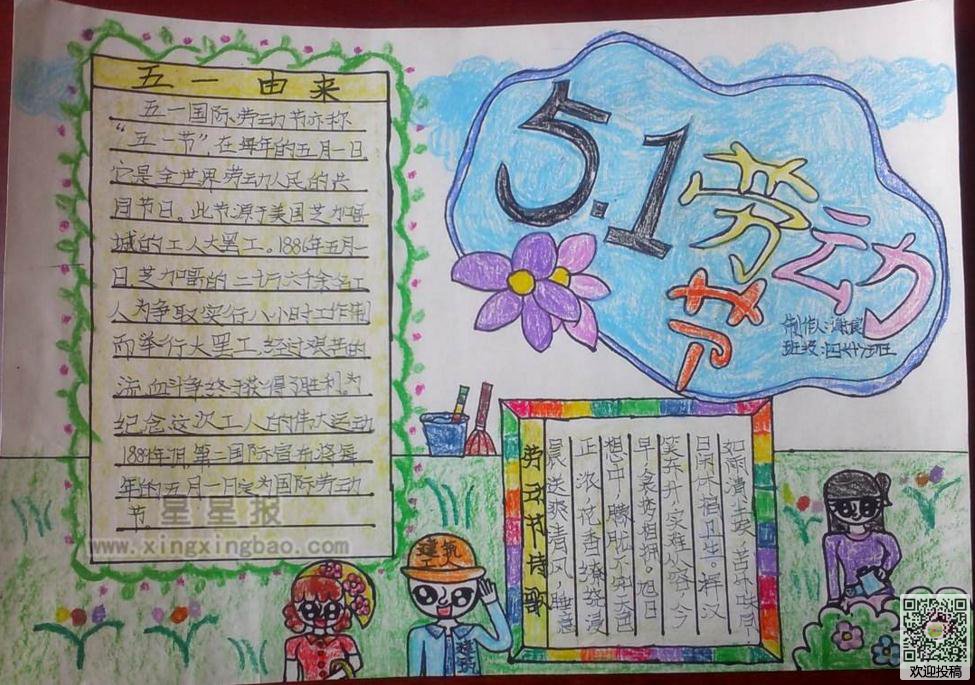 五一 由来
五一国际劳动节亦称
“五一节”,在每年的五月一日
它是全世界劳动人民的共
同节日。此节源于美国芝加哥
城的工人大罢工。1886年五月一
日,芝加哥的二十一万六千余名工
人为争取实行八小时工作制
而举行大罢工,经过艰苦的
流血斗争终于获得了胜利。为
纪念这次工人的伟大运动
1889年7月,第二国际宣布将每
年的五月一日定为国际劳动
节
5.1劳动
节
制作人:谢
班级:四
劳动节诗歌
晨送爽清风 睡意
正浓,花香撩绕浸
想中,朦胧
早 衾 相拥。旭日
笑东升,家难从容,今
日闲休稻卫生。挥汉
如雨清土
建筑
工人
星星报
www.xingxingbao.com
欢迎投稿